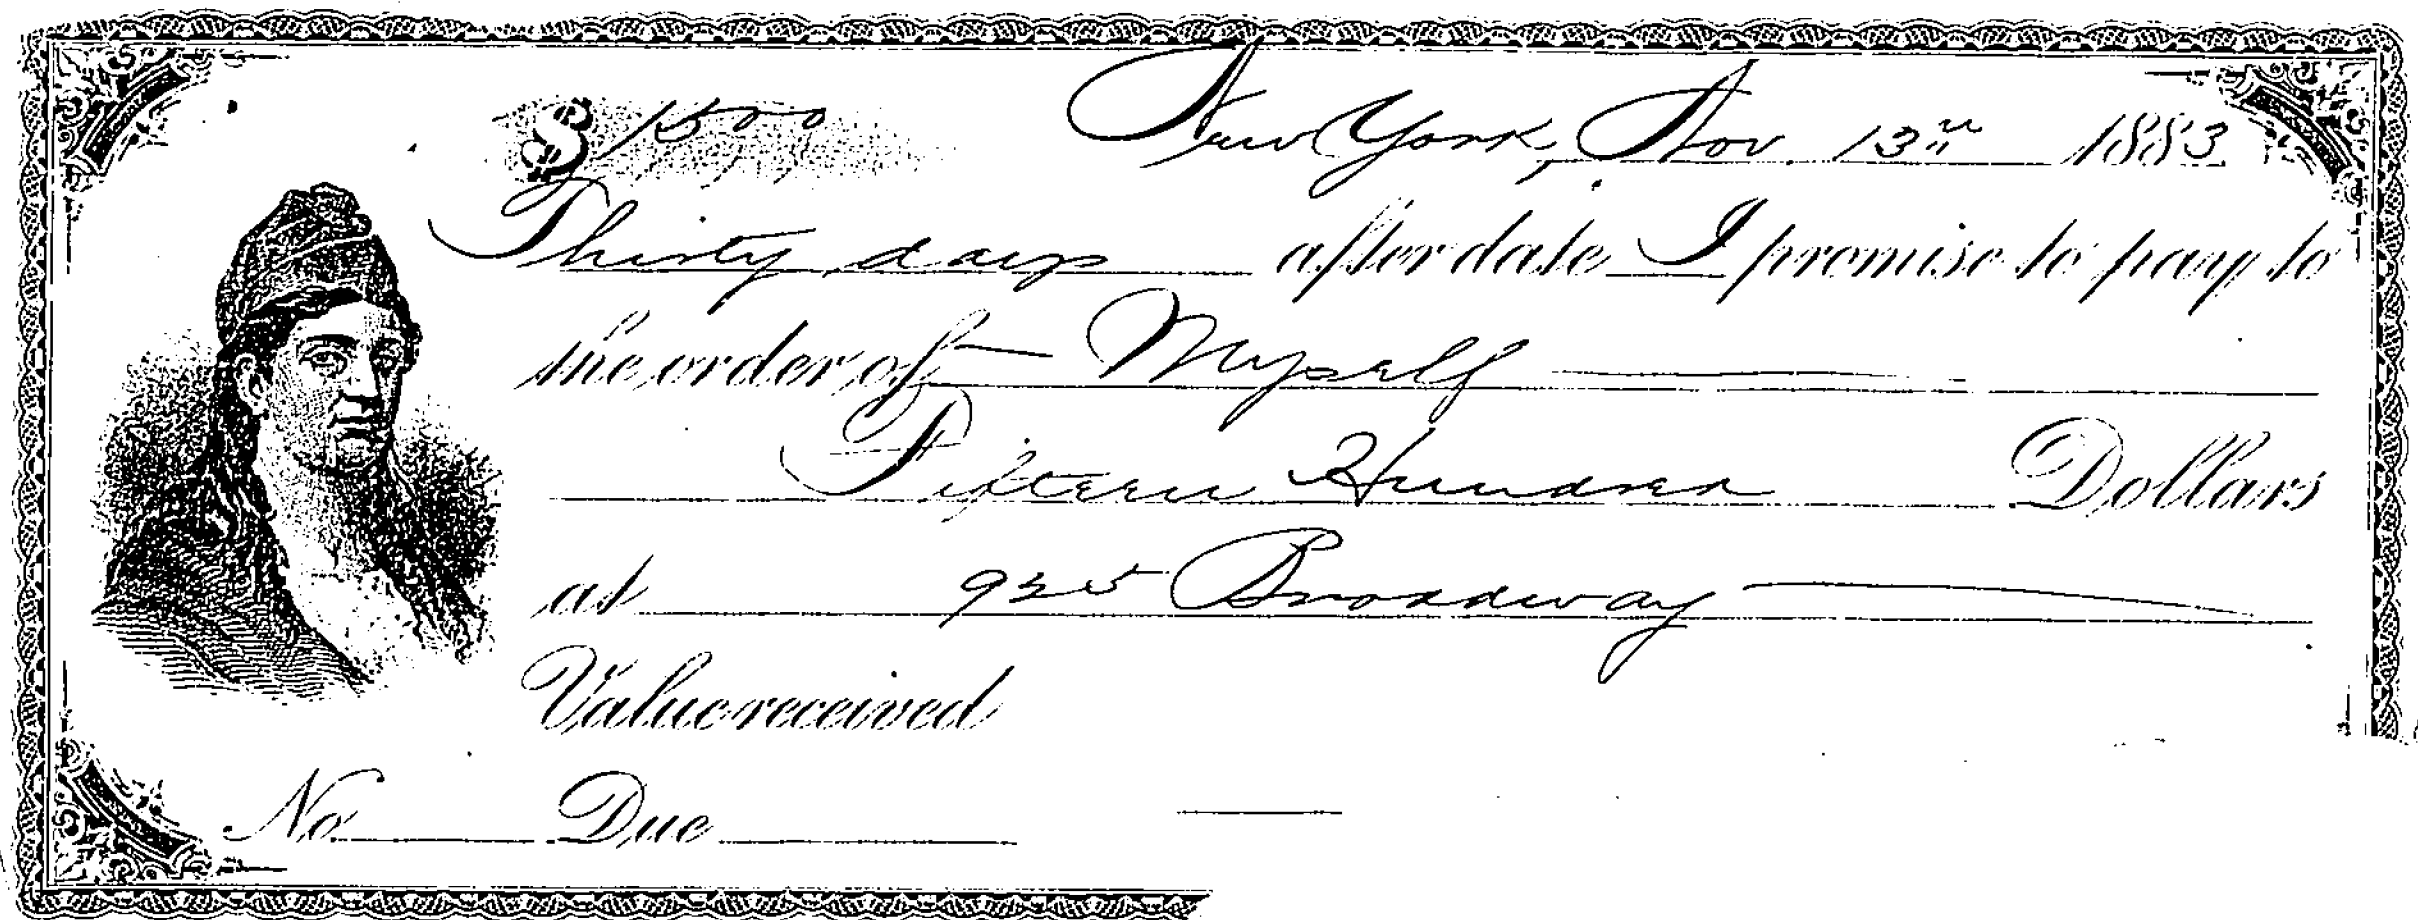 $ 1500 New York, Nov. 13th 1883
Thirty days after date I promise to pay to
the order of Myself
Fifteen Hundred Dollars
at 925 Broadway
Value received
No. Due